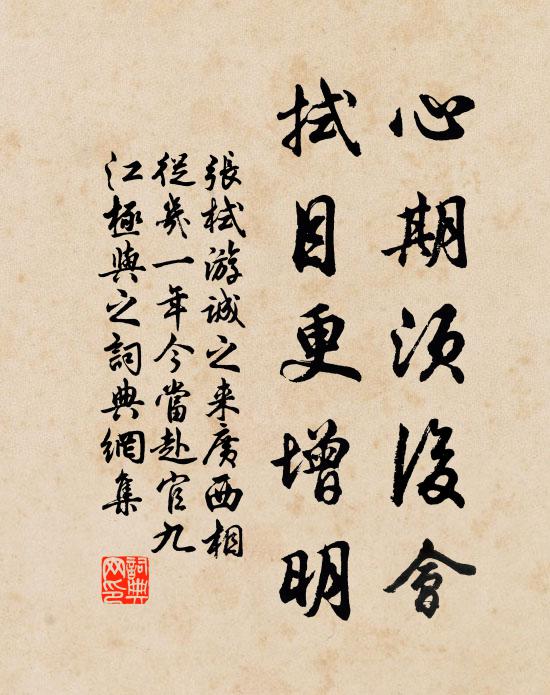 心期須後會
拭目更增明
張栻游誠之来廣西相
從幾一年今當赴官九
江極與之詞典網集
詞典网印